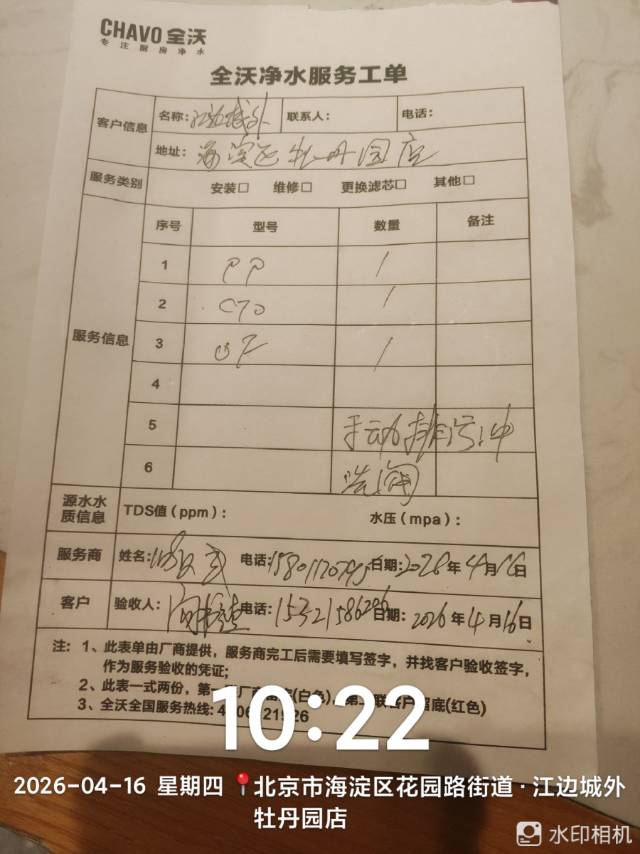 CHAVO 全沃
专注厨房净水
全沃净水服务工单
客户信息 名称：江边城外 联系人： 电话：
地址：海淀区牡丹园店
服务类别 安装□ 维修□ 更换滤芯□ 其他□
服务信息 序号 型号 数量 备注
1 PP 1
2 CTO 1
3 UF 1
4
5 手动排污冲
6 洗阀
源水水质信息 TDS值（ppm）： 水压（mpa）：
服务商 姓名： 电话： 日期：2026年4月16日
客户 验收人： 电话：15321586286 日期：2026年4月16日
注：1、此表单由厂商提供，服务商完工后需要填写签字，并找客户验收签字，
作为服务验收的凭证；
2、此表一式两份，第 (白色)， 客户 底(红色)
3、全沃全国服务热线：
10:22
2026-04-16 星期四 北京市海淀区花园路街道·江边城外
牡丹园店
水印相机